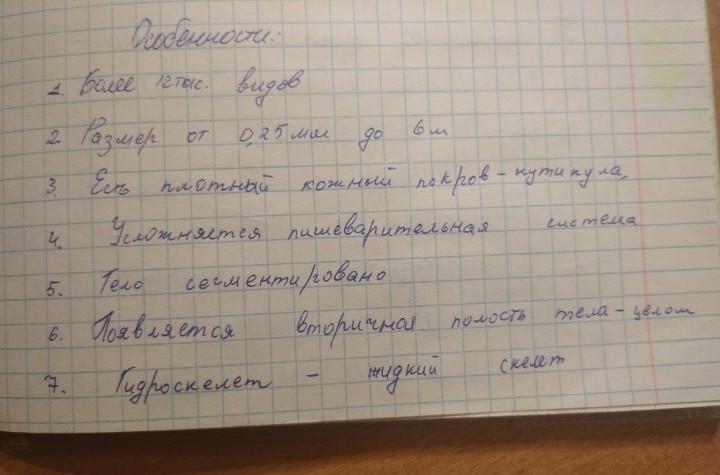 Особенности:
1. Более 12 тыс. видов
2. Размер от 0,25 мм до 6 м
3. Есть плотный кожный покров - кутикула.
4. Усложняется пишеварительная система
5. Тело сегментировано
6. Появляется вторичная полость тела - целом
7. Гидроскелет - жидкий скелет